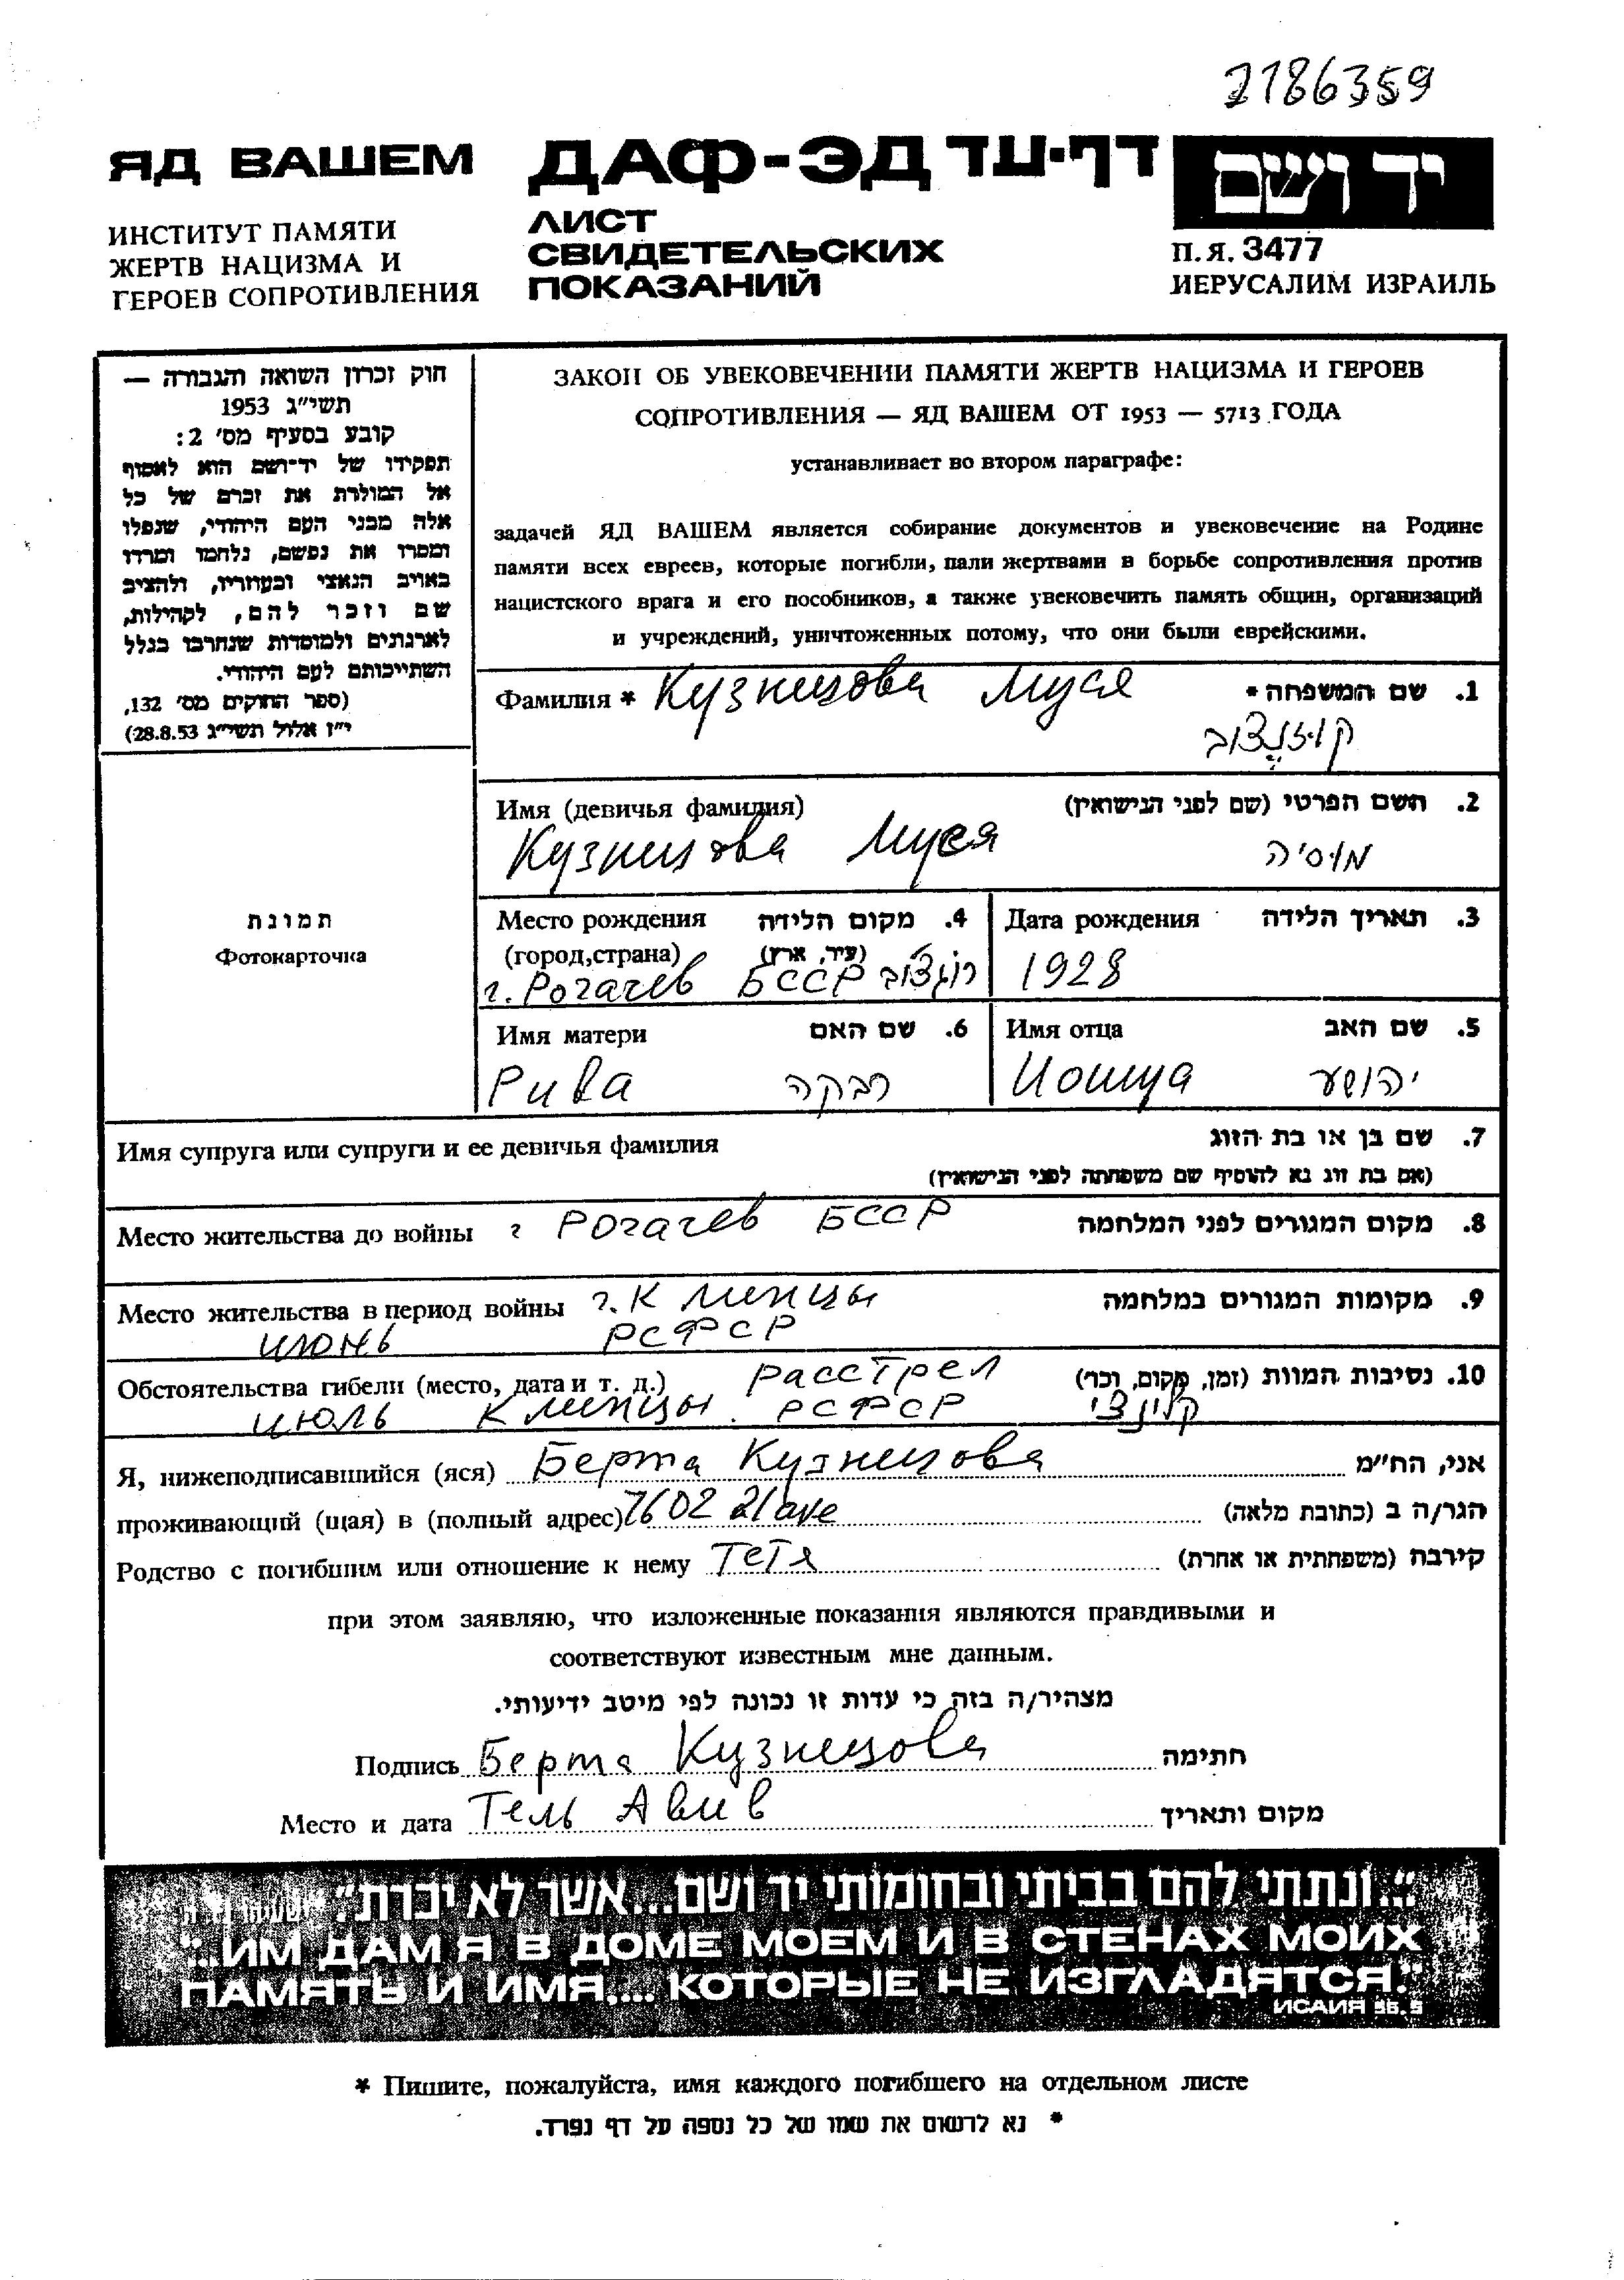 2186359
ЯД ВАШЕМ
ДАФ-ЭД דף-עד
יד ושם
ИНСТИТУТ ПАМЯТИ
ЖЕРТВ НАЦИЗМА И
ГЕРОЕВ СОПРОТИВЛЕНИЯ
ЛИСТ
СВИДЕТЕЛЬСКИХ
ПОКАЗАНИЙ
П.Я. 3477
ИЕРУСАЛИМ ИЗРАИЛЬ
חוק זכרון השואה והגבורה —
תשי"ג 1953
קובע בסעיף מס' 2:
תפקידו של יד-ושם הוא לאסוף
אל המולדת את זכרם של כל
אלה מבני העם היהודי, שנפלו
ומסרו את נפשם, נלחמו ומרדו
באויב הנאצי ובעוזריו, ולהציב
שם וזכר להם, לקהילות,
לארגונים ולמוסדות שנחרבו בגלל
השתייכותם לעם היהודי.
(ספר החוקים מס' 132,
י"ז אלול תשי"ג 28.8.53)
ЗАКОН ОБ УВЕКОВЕЧЕНИИ ПАМЯТИ ЖЕРТВ НАЦИЗМА И ГЕРОЕВ
СОПРОТИВЛЕНИЯ — ЯД ВАШЕМ ОТ 1953 — 5713 ГОДА
устанавливает во втором параграфе:
задачей ЯД ВАШЕМ является собирание документов и увековечение на Родине
памяти всех евреев, которые погибли, пали жертвами в борьбе сопротивления против
нацистского врага и его пособников, а также увековечить память общин, организаций
и учреждений, уничтоженных потому, что они были еврейскими.
Фамилия * Кузнецова Муся 1. שם המשפחה *
קוזנצוב
Имя (девичья фамилия) 2. השם הפרטי (שם לפני הנישואין)
Кузнецова Муся מוסיה
Место рождения 4. מקום הלידה
(город,страна) (עיר, ארץ)
г. Рогачев БССР רוגצ'וב
Дата рождения 3. תאריך הלידה
1928
Имя матери 6. שם האם
Рива רבקה
Имя отца 5. שם האב
Иошуа יהושע
Имя супруга или супруги и ее девичья фамилия 7. שם בן או בת הזוג
(אם בת זוג נא להוסיף שם משפחתה לפני הנישואין)
Место жительства до войны г Рогачев БССР 8. מקום המגורים לפני המלחמה
Место жительства в период войны г. Клинцы 9. מקומות המגורים במלחמה
июнь РСФСР
Обстоятельства гибели (место, дата и т. д.) расстрел 10. נסיבות המוות (זמן, מקום, וכו')
июль Клинцы. РСФСР קלינצי
Я, нижеподписавшийся (яся) Берта Кузнецова אני, הח"מ
проживающий (щая) в (полный адрес) 7602 21 ave הגר/ה ב (כתובת מלאה)
Родство с погибшим или отношение к нему Тетя קירבה (משפחתית או אחרת)
при этом заявляю, что изложенные показания являются правдивыми и
соответствуют известным мне данным.
מצהיר/ה בזה כי עדות זו נכונה לפי מיטב ידיעותי.
Подпись Берта Кузнецова חתימה
Место и дата Тель Авив מקום ותאריך
"...ונתתי להם בביתי ובחומותי יד ושם...אשר לא יכרת".
"...ИМ ДАМ Я В ДОМЕ МОЕМ И В СТЕНАХ МОИХ
ПАМЯТЬ И ИМЯ.... КОТОРЫЕ НЕ ИЗГЛАДЯТСЯ."
ИСАИЯ 56.5
* Пишите, пожалуйста, имя каждого погибшего на отдельном листе
* נא לרשום את שמו של כל נספה על דף נפרד.